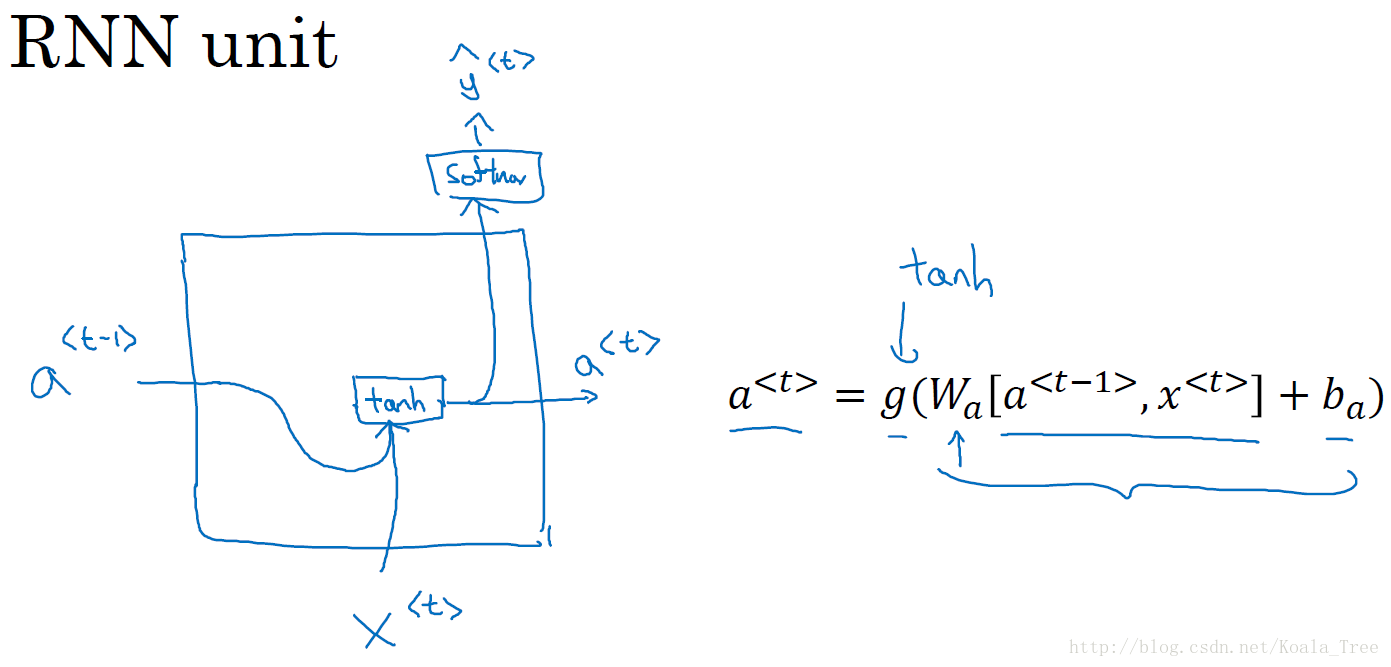 RNN unit
ŷ<t>
softmax
a<t-1>
tanh
a<t>
x<t>
tanh
a<t> = g(Wₐ[a<t−1>, x<t>] + bₐ)
http://blog.csdn.net/Koala_Tree